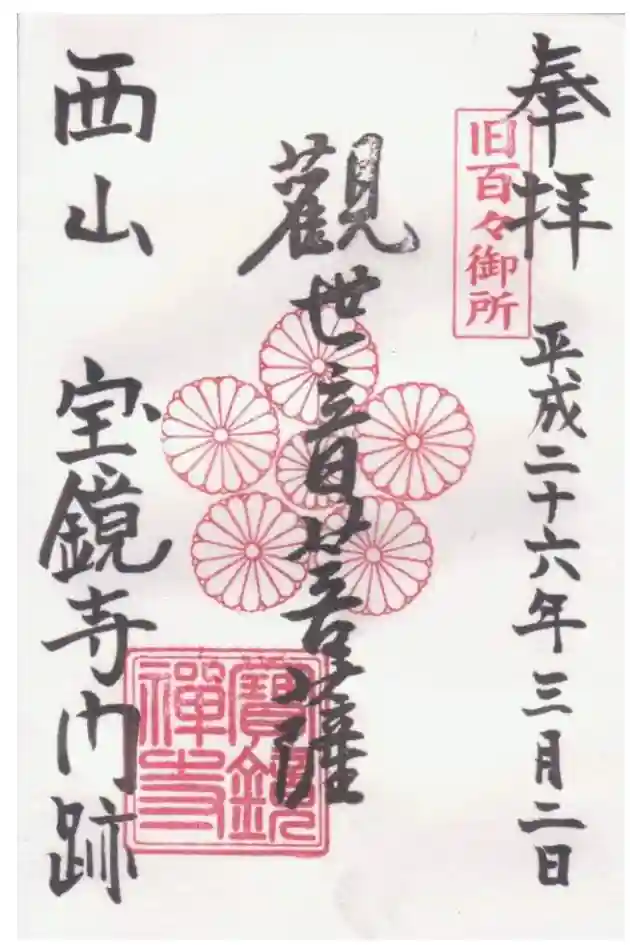 奉拝
旧百々御所
平成二十六年三月二日
觀世音菩薩
西山
宝鏡寺门跡
寶鏡
禅寺